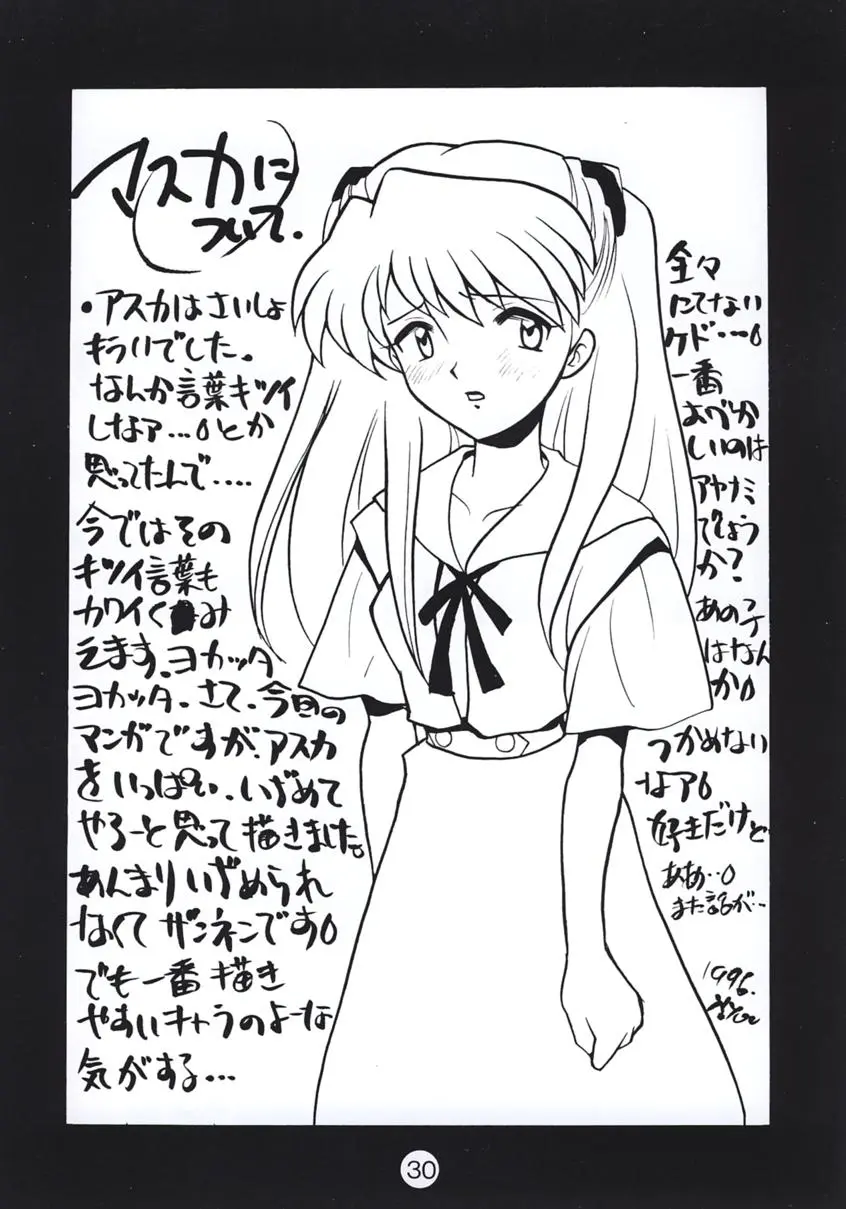 アスカに
ついて.
・アスカはさいしょ
キライでした。
なんか言葉キツイ
しなァ...とか
思ってたんで....
今ではその
キツイ言葉も
カワイくみ
えます。ヨカッタ
ヨカッタ。さて、今回の
マンガですが、アスカ
をいっぱい、いぢめて
やろーと思って描きました。
あんまりいぢめられ
なくてザンネンです
でも一番描き
やすいキャラのよーな
気がする...
全々
にてない
ケド...
一番
むづか
しいのは
アヤナミ
でしょう
か?
あの子
はなん
か
つかめない
なァ
好きだけど
ああ..
また話が..
1996.
30